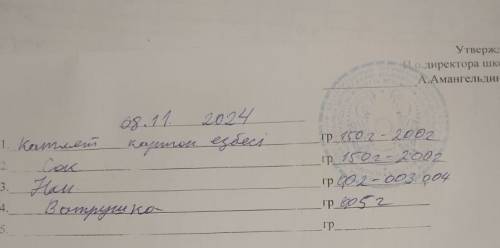 Утвержд
И.о.директора шко
А.Амангельдин
08.11. 2024
1. Котлет картоп езбесі гр 150г-200г
2. Сок гр 150г-200г
3. Нан гр 002-003.004
4. Ватрушка гр 005г
5. гр